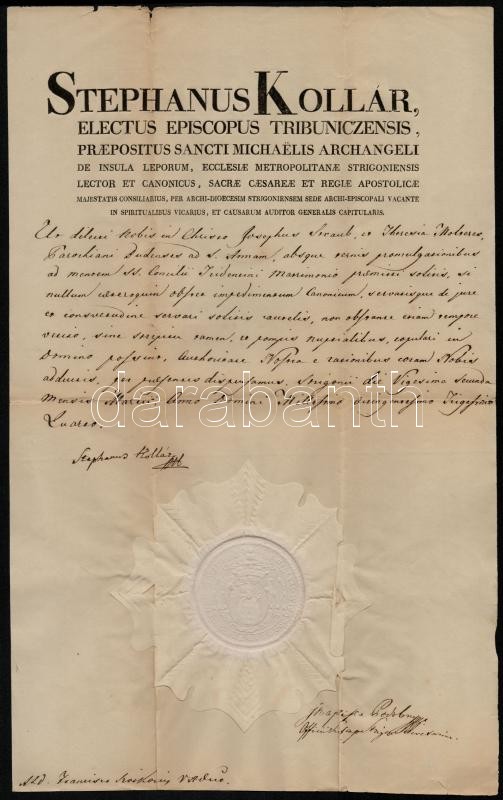 STEPHANUS KOLLÁR,
ELECTUS EPISCOPUS TRIBUNICZENSIS,
PRÆPOSITUS SANCTI MICHAËLIS ARCHANGELI
DE INSULA LEPORUM, ECCLESIÆ METROPOLITANÆ STRIGONIENSIS
LECTOR ET CANONICUS, SACRÆ CÆSAREÆ ET REGIÆ APOSTOLICÆ
MAJESTATIS CONSILIARIUS, PER ARCHI-DIOECESIM STRIGONIENSEM SEDE ARCHI-EPISCOPALI VACANTE
IN SPIRITUALIBUS VICARIUS, ET CAUSARUM AUDITOR GENERALIS CAPITULARIS.
Ut dilecti Nobis in Christo Josephus Straub, et Theresia
Parochiani Budenses ad S. Annam, absque ternis promulgationibus
ad mentem SS. Concilii Tridentini Matrimonio præmitti solitis, si
nullum cæteroquin obstet impedimentum Canonicum, servatisque de jure
et consvetudine servari solitis cautelis, non obstante etiam tempore
vetito, sine strepitu tamen, et pompis nuptialibus, copulari in
Domino possint, Authoritate Nostra e rationibus coram Nobis
adductis, per præsentes dispensamus. Strigonii die Vigesima secunda
Mensis Martii Anno Domini Millesimo octingentesimo Trigesimo
Quarto.
darabanth
Stephanus Kollár